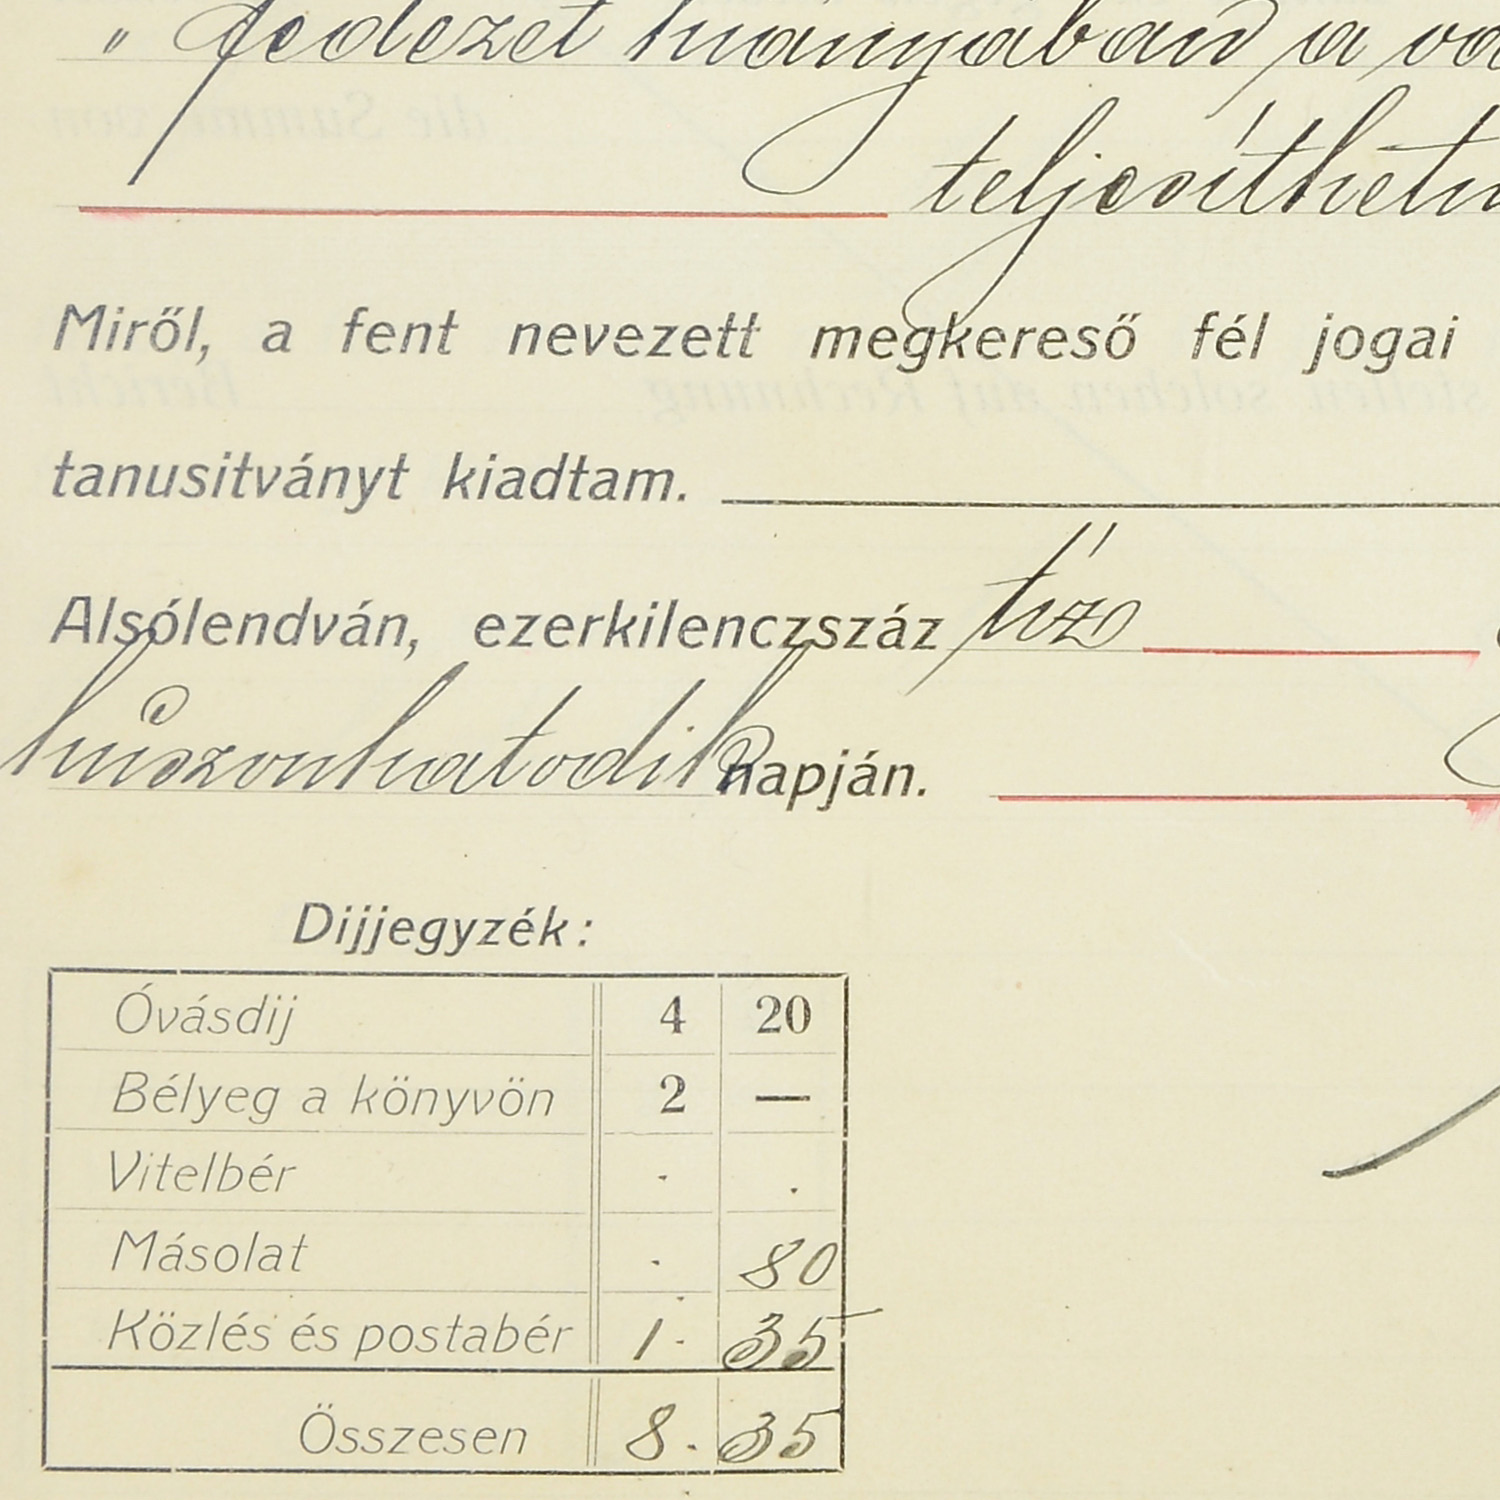 " fedezet hiányában a
teljesíthető
Miről, a fent nevezett megkereső fél jogai
tanusitványt kiadtam.
Alsólendván, ezerkilenczszáz tíz
huszonhatodik napján.
Dijjegyzék:
Óvásdij 4 20
Bélyeg a könyvön 2 —
Vitelbér . .
Másolat . 80
Közlés és postabér 1. 35
Összesen 8. 35